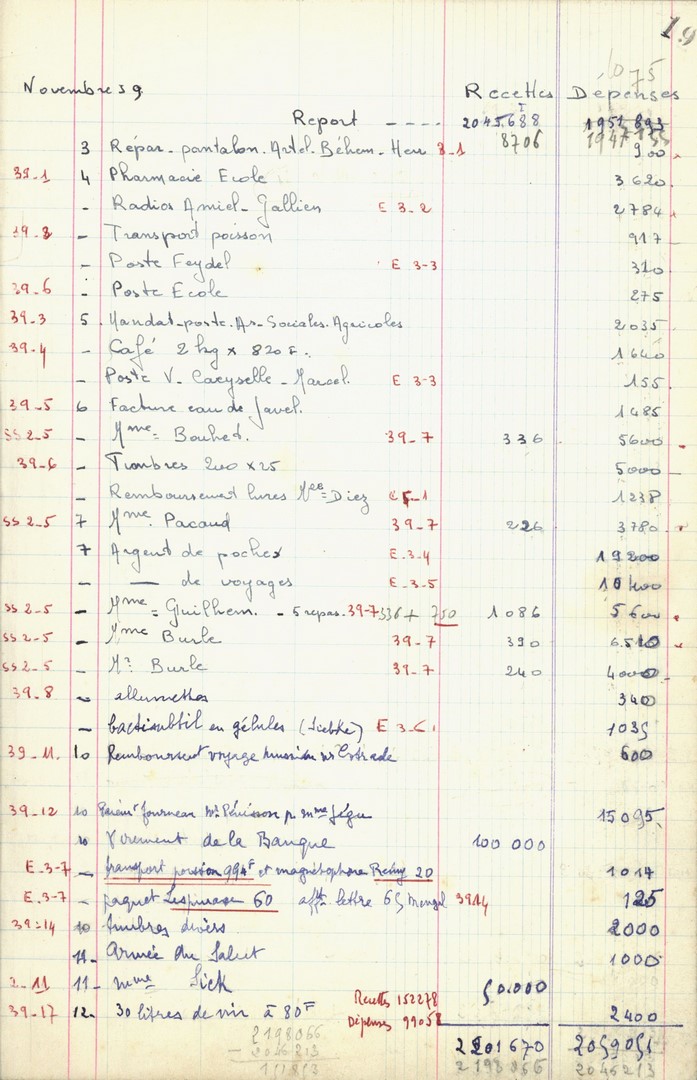 19
1075
Novembre 59 Recettes Dépenses
Report ---- 2045.688 1951 893
8706 1947 155
3 Répar. pantalon. Artel. Béhem. Herr 8-1 900
39-1 4 Pharmacie Ecole 3620
- Radios Amiel-Gallien E 3-2 2784
19-8 - Transport poisson 917
- Poste Feydel E 3-3 310
39-6 - Poste Ecole 275
39-3 5 Mandat-poste. As. Sociales. Agricoles 2035
39-4 - Café 2 kg x 820 F. 1640
- Poste V. Caeyselle - Marcel. E 3-3 155
39-5 6 Facture eau de Javel. 1485
SS 2-5 - Mme: Bouhet. 39-7 336 5600
39-6 - Timbres 200 x 25 5000
- Remboursement livres Mlle: Diez 1238
SS 2-5 7 Mme. Pacaud 39-7 226 3780
7 Argent de poches E.3-4 19200
- — de voyages E.3-5 10400
SS 2-5 - Mme= Guilhem. - 5 repas. 39-7 336 + 750 1086 5600
SS 2-5 - Mme Burle 39-7 390 6510
SS 2-5 - Mr Burle 39-7 240 4000
39-8 - allumettes 340
- bactisubtil en gélules (Liebke) E 3-6 1035
39-11. 10 Remboursemt voyage Mr Estrade 600
39-12 10 fourneau Mr Pénisson p. mme Jégu 15095
10 Virement de la Banque 100 000
E.3-7 - transport poisson 994F et magnétophone Remy 20 1014
E.3-7 - paquet Lespinasse 60 afft lettre 65 Mengel 3914 125
39-14 10 timbres divers 2000
11- Armée du Salut 1000
2-11 11- mme Sick 50.000
39-17 12. 30 litres de vin à 80F 2400
Recettes 152278
Dépenses 99058
2201670 2059051
2198066
- 2046213
2193866 2045213